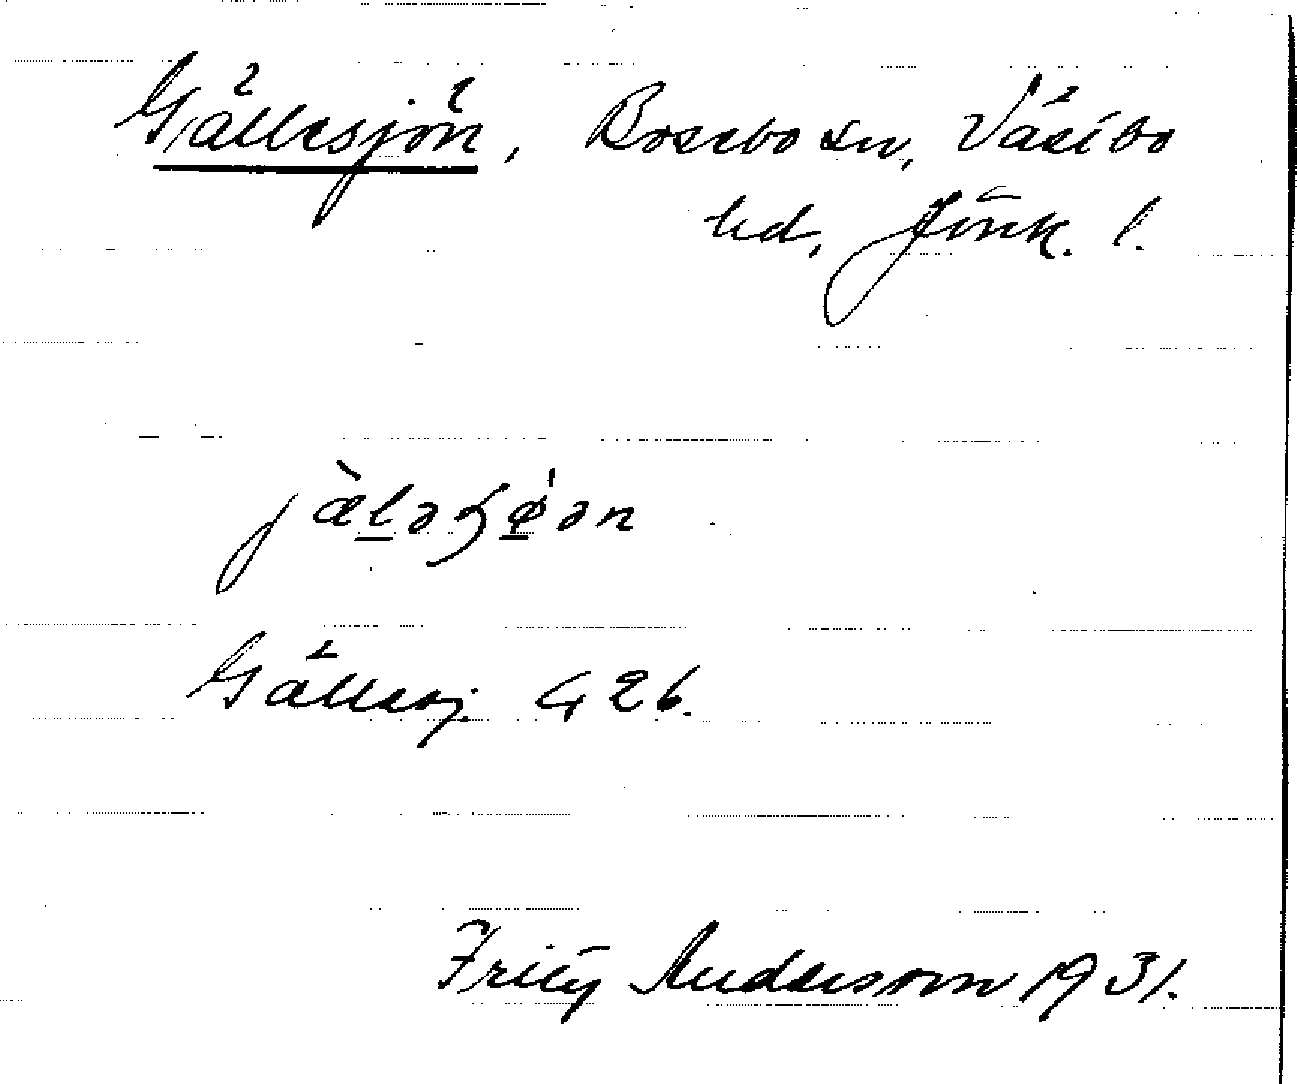 Gällesjön, Bosebo sn, Västbo
hd, Jönk. l.
jæ̀lə ø̍ən
Gällesj. G 26.
Fritz Andersson 1931.